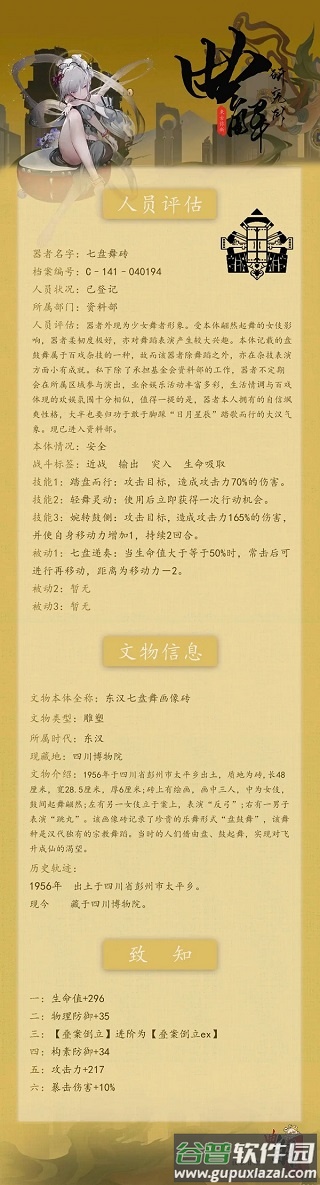 曲解
研究院
人员评估
器者名字：七盘舞砖
档案编号：C-141-040194
人员状况：已登记
所属部门：资料部
人员评估：器者外现为少女舞者形象。受本体翩然起舞的女伎影
响，器者柔韧度极好，亦对舞蹈表演产生较大兴趣。本体记载的盘
鼓舞属于百戏杂技的一种，故而该器者除舞蹈之外，亦在杂技表演
方面小有成就。私下除了承担基金会资料部的工作，器者不定期
会在所属区域参与演出，业余娱乐活动丰富多彩，生活情调与百戏
体现的欢娱氛围十分相似，值得一提的是，器者本人拥有的自信飒
爽性格，大半也要归功于敢于脚踩“日月星辰”踏歌而行的大汉气
象。现已进入资料部。
本体情况：安全
战斗标签：近战 输出 突入 生命吸取
技能1：踏盘而行：攻击目标，造成攻击力70%的伤害。
技能2：轻舞灵动：使用后立即获得一次行动机会。
技能3：婉转鼓侧：攻击目标，造成攻击力165%的伤害，
并使自身移动力增加1，持续2回合。
被动1：七盘递奏：当生命值大于等于50%时，常击后可
进行再移动，距离为移动力-2。
被动2：暂无
被动3：暂无
文物信息
文物本体全称：东汉七盘舞画像砖
文物类型：雕塑
所属时代：东汉
现藏地：四川博物院
文物介绍：1956年于四川省彭州市太平乡出土，质地为砖，长48
厘米，宽28.5厘米，厚6厘米；砖上有绘画，画中三人，中为女伎，
鼓间起舞翩然；左有另一女伎立于案上，表演“反弓”；右有一男子
表演“跳丸”。该画像砖记录了珍贵的乐舞形式“盘鼓舞”，该舞
种是汉代独有的宗教舞蹈。当时的人们借由盘、鼓起舞，实现对飞
升成仙的渴望。
历史轨迹：
1956年 出土于四川省彭州市太平乡。
现今 藏于四川博物院。
致 知
一：生命值+296
二：物理防御+35
三：【叠案倒立】进阶为【叠案倒立ex】
四：构素防御+34
五：攻击力+217
六：暴击伤害+10%
谷普软件园
www.gupuxiazai.com